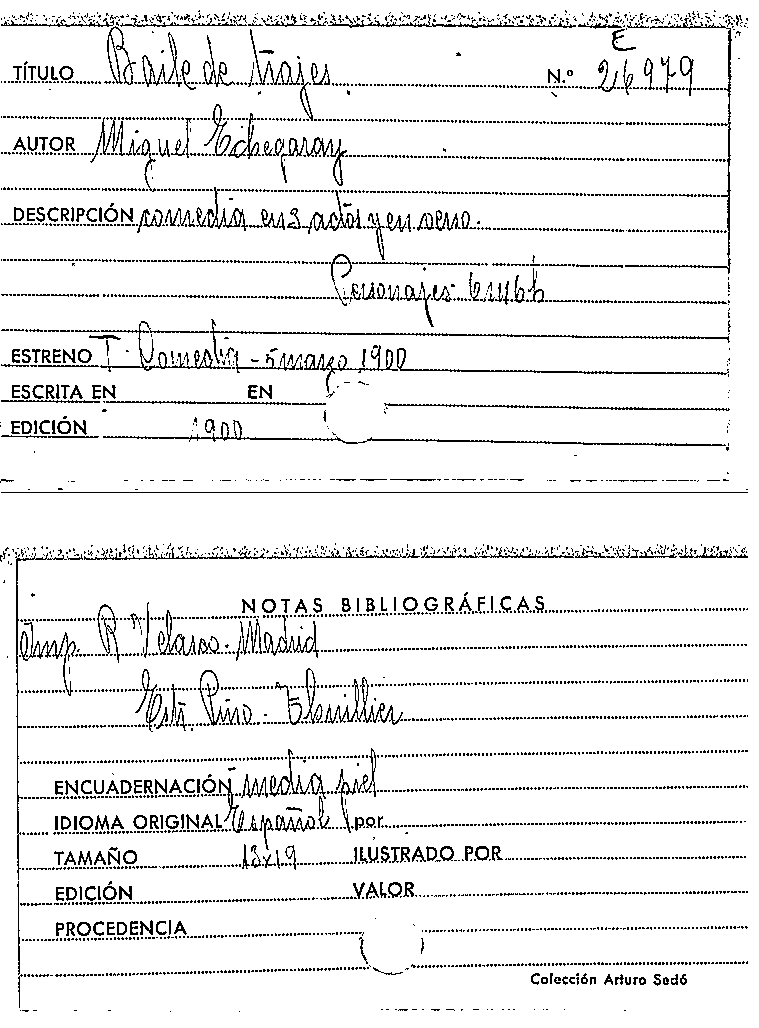 E
TÍTULO Baile de trajes N.º 26979
AUTOR Miguel Echegaray
DESCRIPCIÓN comedia en 3 actos y en verso.
Personajes 6m 6h
ESTRENO T. Comedia - 5 marzo 1900
ESCRITA EN EN
EDICIÓN 1900
NOTAS BIBLIOGRÁFICAS
Imp. R Velasco. Madrid
Estr. Pino - Thuillier
ENCUADERNACIÓN media piel
IDIOMA ORIGINAL Español por
TAMAÑO 13x19 ILUSTRADO POR
EDICIÓN VALOR
PROCEDENCIA
Colección Arturo Sedó